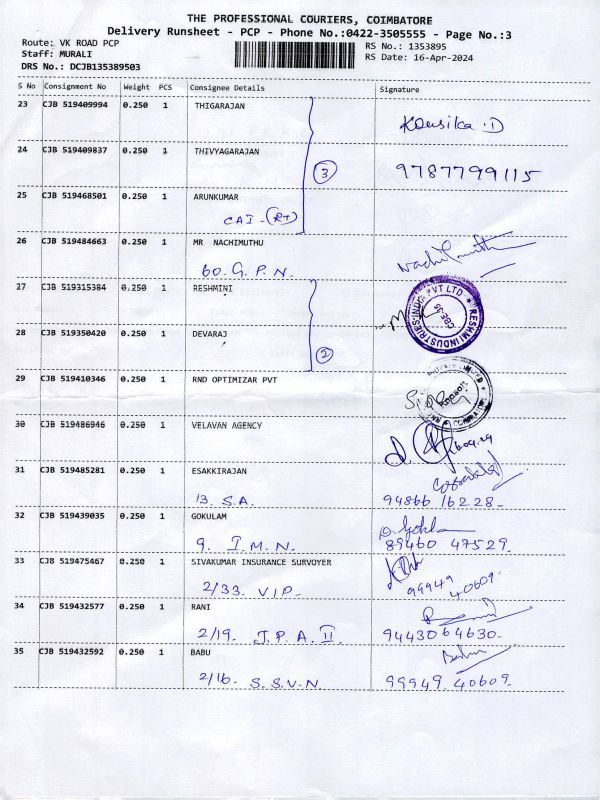 THE PROFESSIONAL COURIERS, COIMBATORE
Delivery Runsheet - PCP - Phone No.:0422-3505555 - Page No.:3
Route: VK ROAD PCP RS No.: 1353895
Staff: MURALI RS Date: 16-Apr-2024
DRS No.: DCJB135389503
S No Consignment No Weight PCS Consignee Details Signature
23 CJB 519409994 0.250 1 THIGARAJAN
Kousika.D
24 CJB 519409837 0.250 1 THIVYAGARAJAN
3 9787799115
25 CJB 519468501 0.250 1 ARUNKUMAR
CAI -(RT)
26 CJB 519484663 0.250 1 MR NACHIMUTHU
60. G. P. N.
27 CJB 519315384 0.250 1 RESHMINI
RESHMI INDUSTRIES INDIA PVT LTD
CBE-35
28 CJB 519350420 0.250 1 DEVARAJ
2
29 CJB 519410346 0.250 1 RND OPTIMIZAR PVT
30 CJB 519486946 0.250 1 VELAVAN AGENCY
31 CJB 519485281 0.250 1 ESAKKIRAJAN
13. S.A. 94866 16228-
32 CJB 519439035 0.250 1 GOKULAM
9. I.M.N. 89460 47529.
33 CJB 519475467 0.250 1 SIVAKUMAR INSURANCE SURVOYER
2/33. V.I.P. 99949 40609.
34 CJB 519432577 0.250 1 RANI
2/19. J.P.A. II 9443064630.
35 CJB 519432592 0.250 1 BABU
2/16. S.S.V.N. 99949.40609.